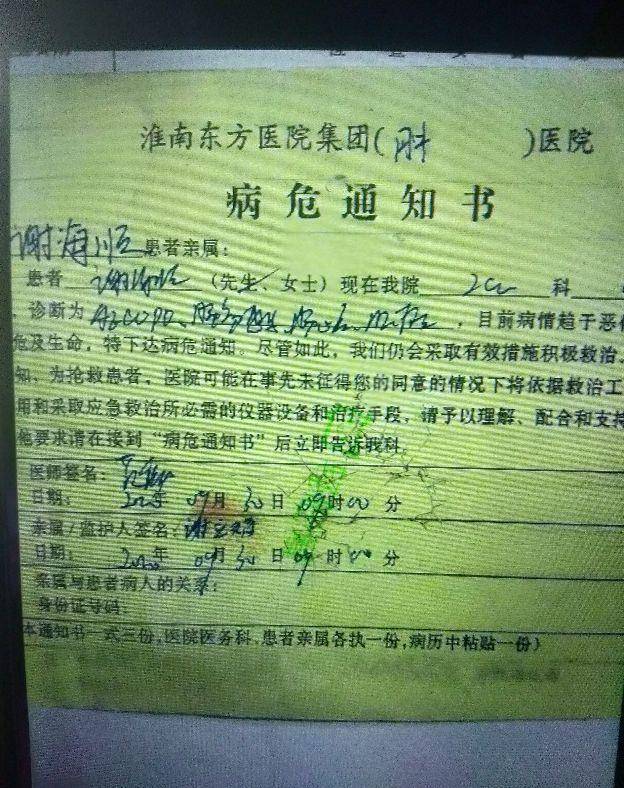 淮南东方医院集团( )医院
病危通知书
谢海顺患者亲属:
患者 谢海顺 (先生、女士)现在我院 科
,诊断为 AECOPD、 ,目前病情趋于恶
危及生命,特下达病危通知。尽管如此,我们仍会采取有效措施积极救治。
知、为抢救患者,医院可能在事先未征得您的同意的情况下将依据救治工
用和采取应急救治所必需的仪器设备和治疗手段,请予以理解、配合和支持
他要求请在接到“病危通知书”后立即告诉我科。
医师签名:
日期: 2020年 09月 30日 09时00分
亲属/监护人签名:
日期: 2020年 09月 30日 09时00分
亲属与患者病人的关系:
身份证号码:
本通知书一式三份,医院医务科、患者亲属各执一份,病历中粘贴一份)